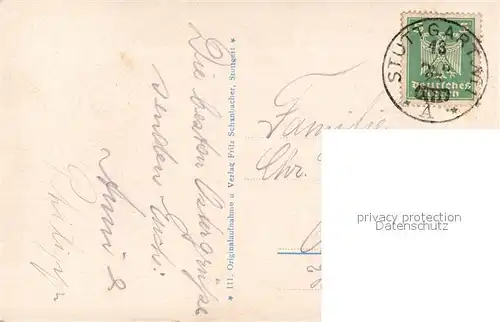 Die besten Ostergrüße
senden Euch
Anni &
Philipp
★ III. Originalaufnahme u Verlag Fritz Schumbacher, Stuttgart ★
STUTTGART
A
Deutsches
Reich
Familie
Chr.
privacy protection
Datenschutz